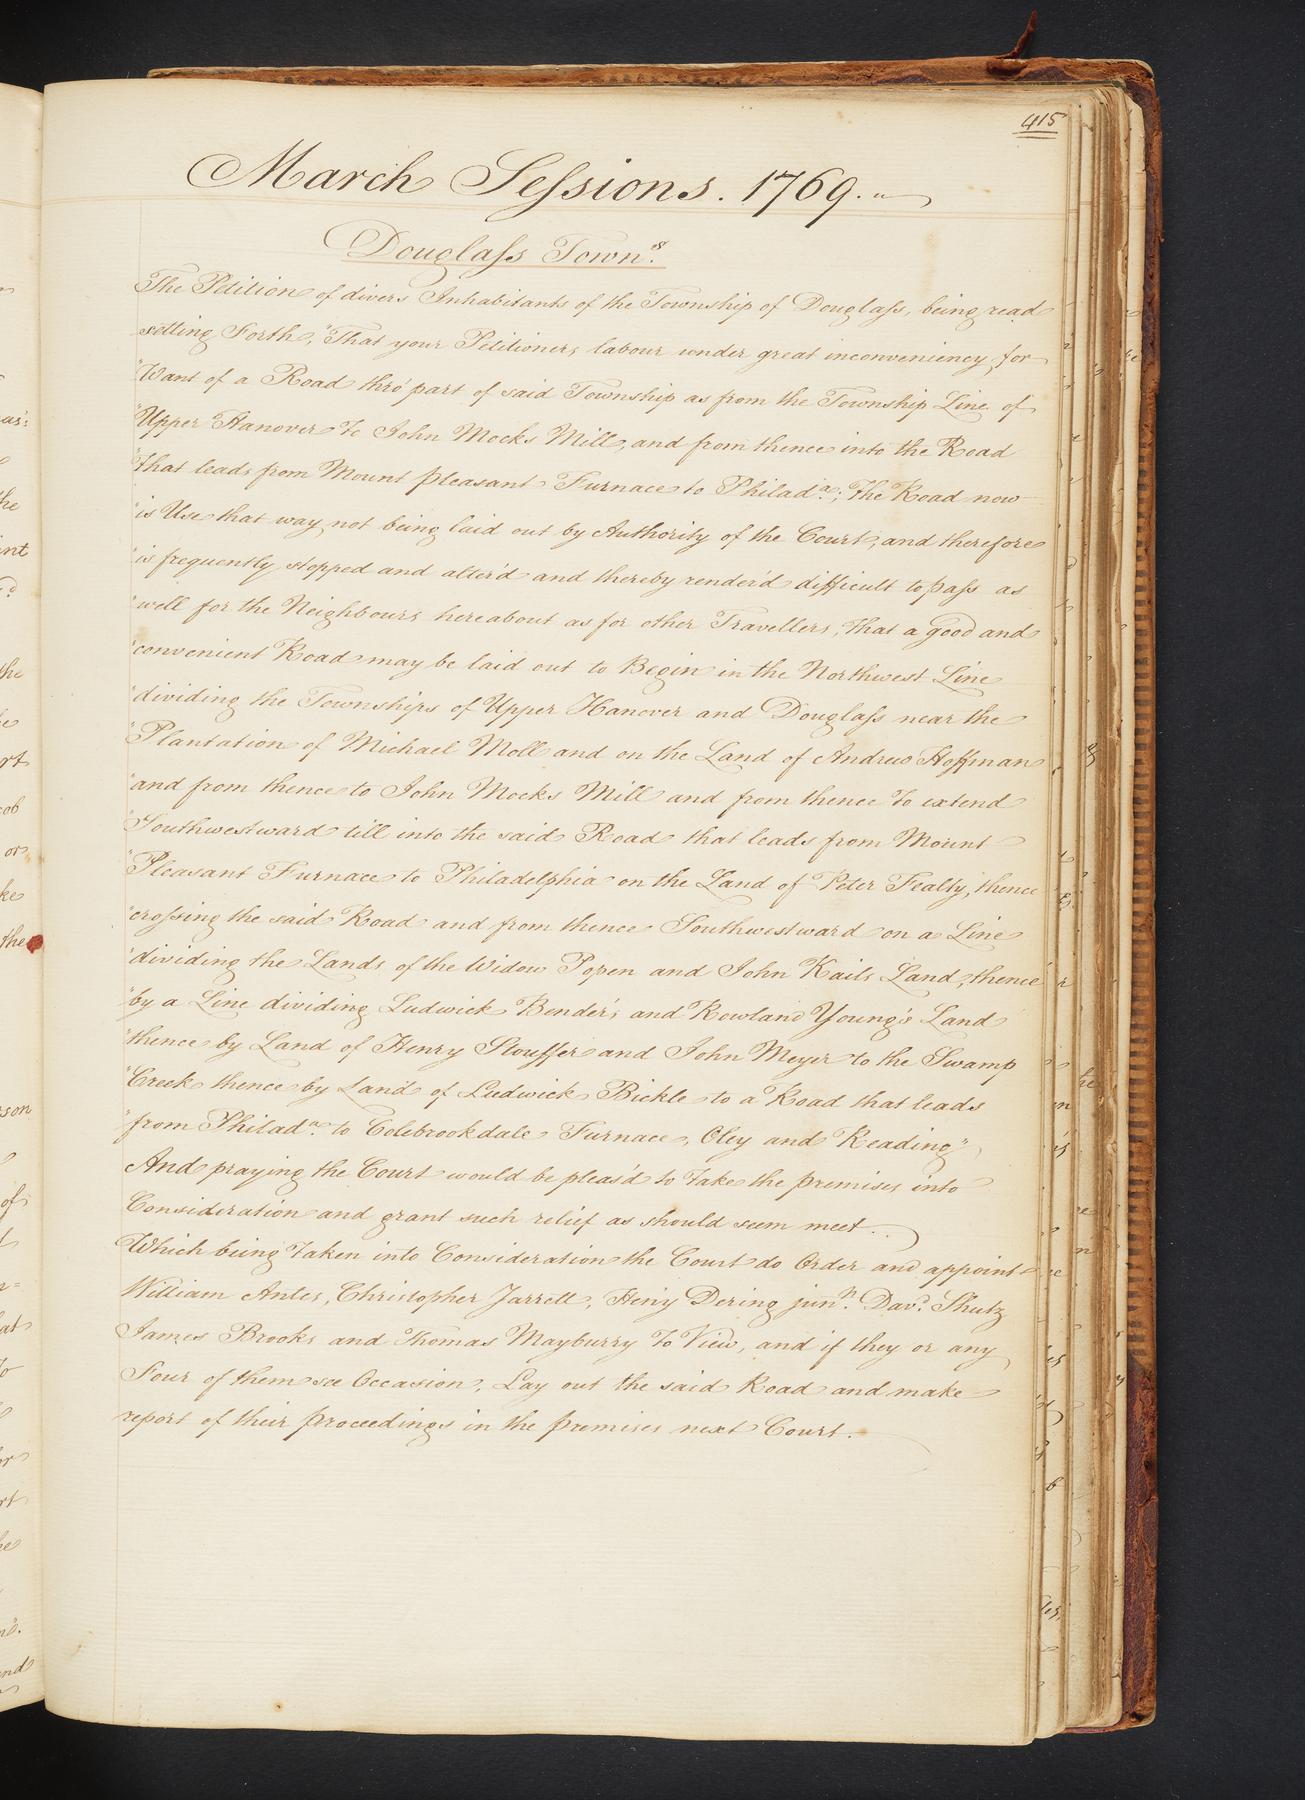 415
March Sessions. 1769.
Douglass Town.s
The Petition of divers Inhabitants of the Township of Douglass, being read
setting Forth, "That your Petitioners labour under great inconveniency for
"Want of a Road thro' part of said Township as from the Township Line of
"Upper Hanover to John Mocks Mill, and from thence into the Road
"that leads from Mount pleasant Furnace to Philad.a; the Road now
"is Use that way not being laid out by Authority of the Court, and therefore
"is frequently stopped and alter'd and thereby render'd difficult to pass as
"well for the Neighbours hereabout as for other Travellers, that a good and
"convenient Road may be laid out to Begin in the Northwest Line
"dividing the Townships of Upper Hanover and Douglass near the
"Plantation of Michael Moll and on the Land of Andrew Hoffman
"and from thence to John Mocks Mill and from thence to extend
"Southwestward till into the said Road that leads from Mount
"Pleasant Furnace to Philadelphia on the Land of Peter Fealty, thence
"crossing the said Road and from thence Southwestward on a Line
"dividing the Lands of the Widow Popen and John Kails Land, thence
"by a Line dividing Ludwick Bender's and Rowland Young's Land
"thence by Land of Henry Stouffer and John Meyer to the Swamp
"Creek thence by Land of Ludwick Bickle to a Road that leads
"from Philad.a to Colebrookdale Furnace, Oley and Reading"
And praying the Court would be pleas'd to take the premises into
Consideration and grant such relief as should seem meet.
Which being taken into Consideration the Court do Order and appoint
William Antes, Christopher Jarrett, Heny Dering jun.r Dav.d Shutz
James Brooks and Thomas Mayburry to View, and if they or any
Four of them see Occasion, Lay out the said Road and make
report of their proceedings in the premises next Court.